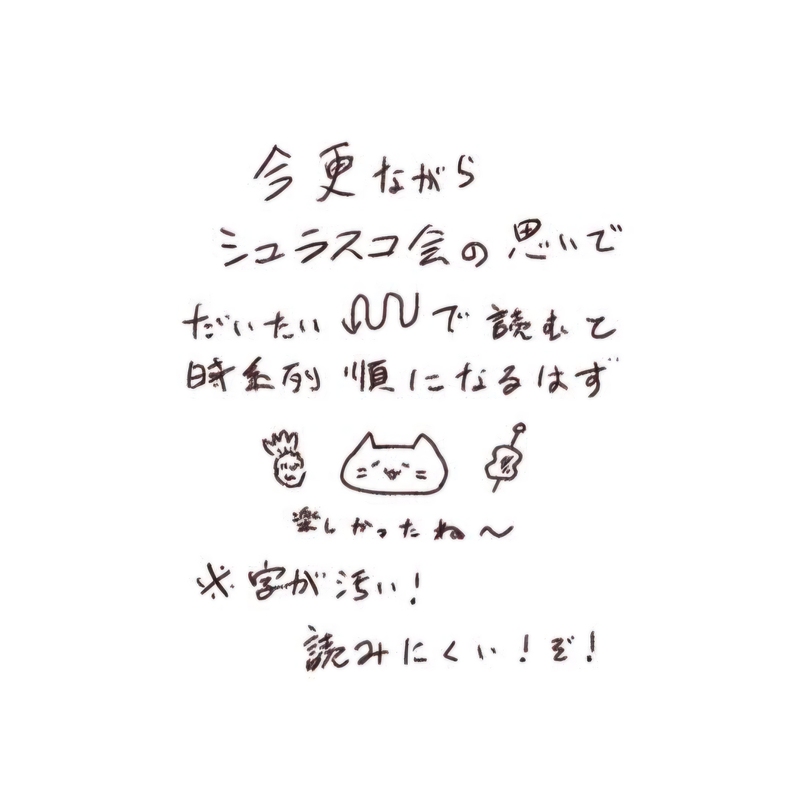 今更ながら
シュラスコ会の思いで
だいたいで読むと
時系列順になるはず
楽しかったね〜
※字が汚い!
読みにくい!ぞ!